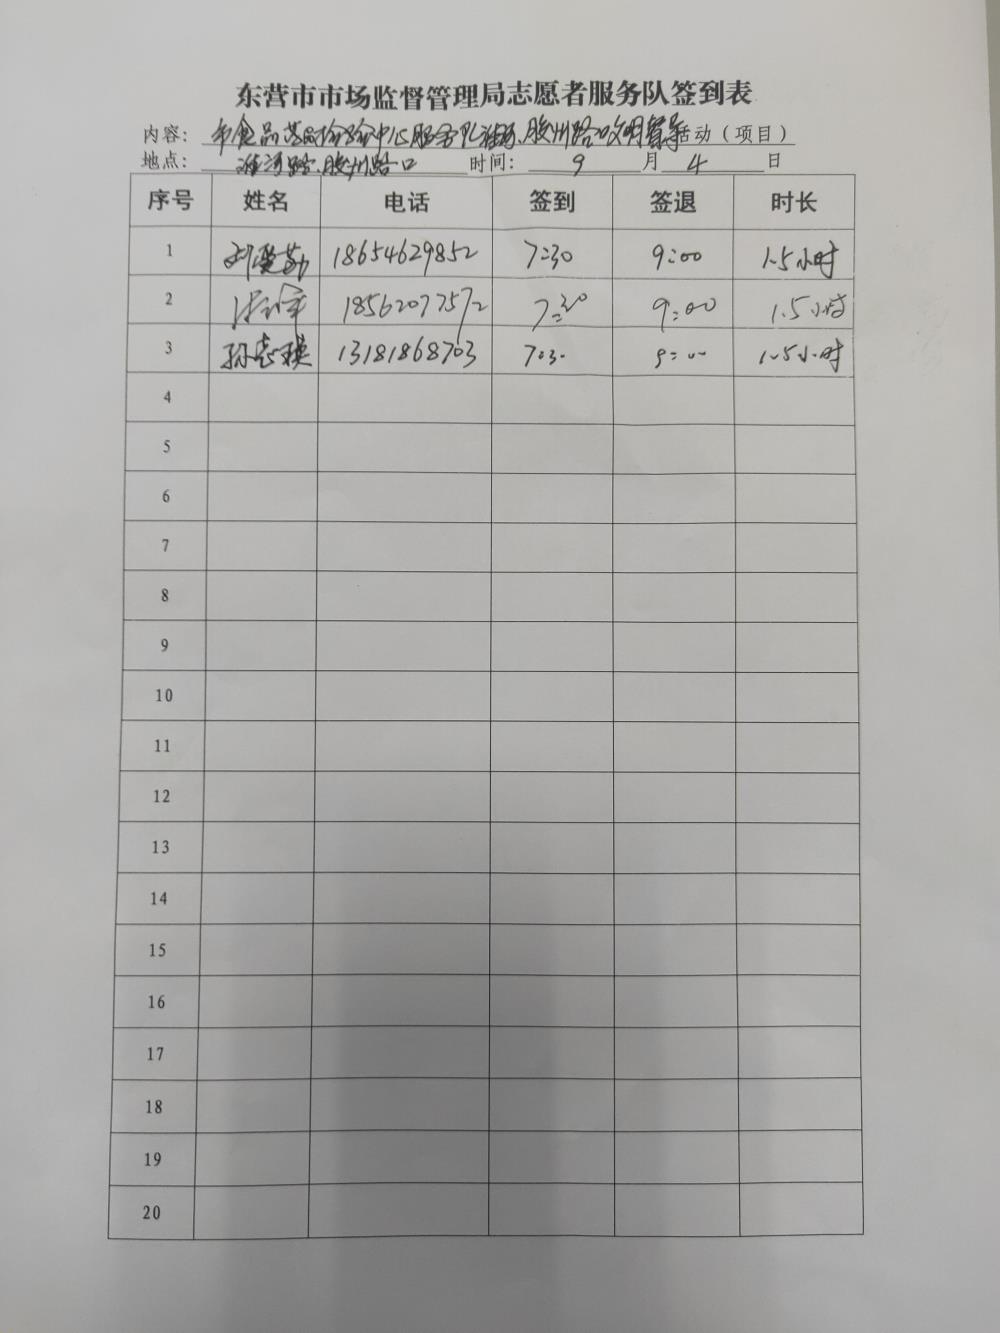 东营市市场监督管理局志愿者服务队签到表
内容：市食品药品检验中心服务队淮河、胶州路口文明督导活动（项目）
地点：淮河路、胶州路口 时间：9月4日
序号 姓名 电话 签到 签退 时长
1 18654629852 7:30 9:00 1.5小时
2 18562077572 7:30 9:00 1.5小时
3 孙志瑛 13181868703 7:30 9:00 1.5小时
4
5
6
7
8
9
10
11
12
13
14
15
16
17
18
19
20